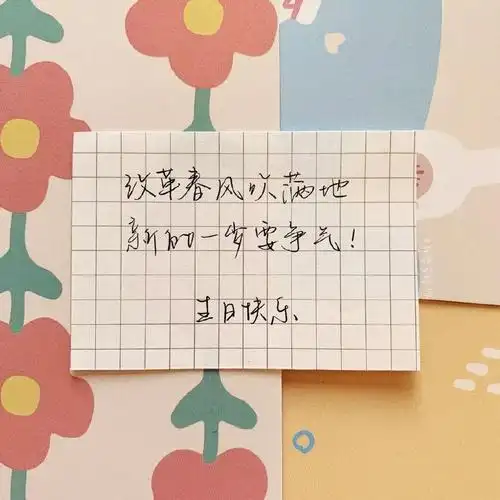 改革春风吹满地
新的一岁要争气！
生日快乐